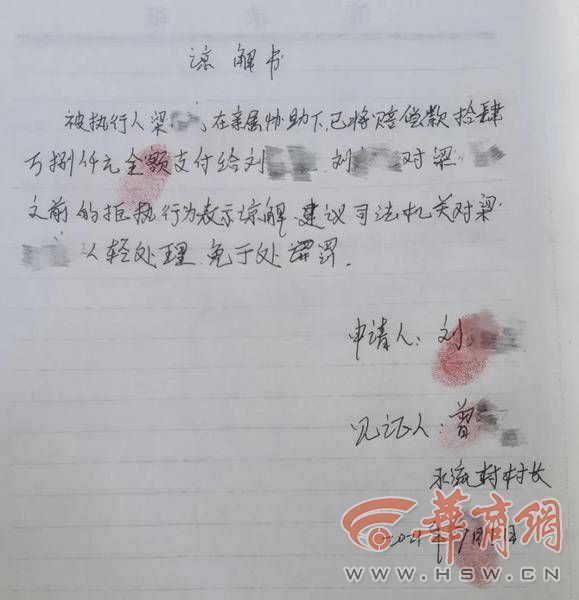 谅解书
被执行人梁 ,在亲属协助下,已将赔偿款拾肆
万捌仟元全额支付给刘 . 刘 对梁
之前的拒执行为表示谅解.建议司法机关对梁
从轻处理.免于处罚.
申请人:刘
见证人:曾
村村长
2021年 月 日
华商网
WWW.HSW.CN